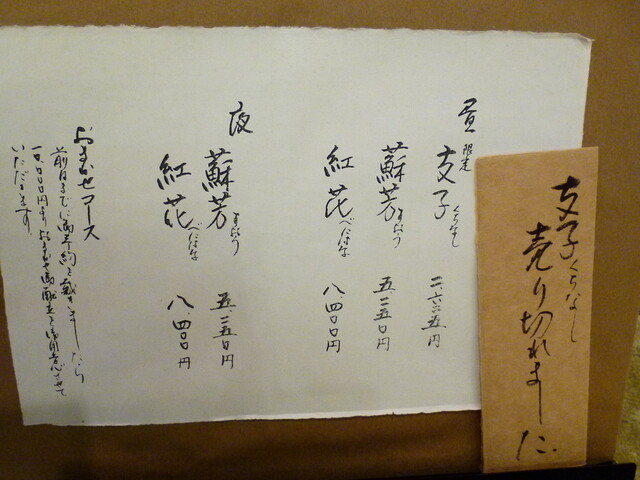 昼
限定 支子 くちなし 二、六二五円
蘇芳 すおう 五、二五〇円
紅花 べにばな 八、四〇〇円
夜
蘇芳 すおう 五、二五〇円
紅花 べにばな 八、四〇〇円
おまかせコース
前日までに御予約を戴きましたら
一〇、〇〇〇円よりおまかせ御献立を御用意させて
いただきます。
支子 くちなし
売り切れました。